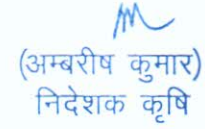 (अम्बरीष कुमार)
निदेशक कृषि